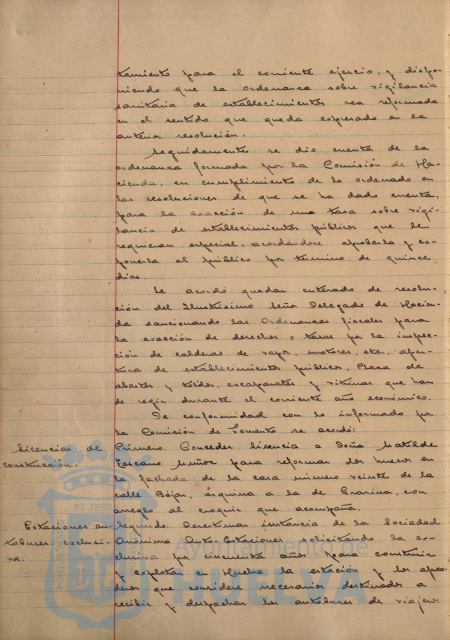 tamiento para el corriente ejercicio, y dispo-
niendo que la ordenanza sobre vigilancia
sanitaria de establecimientos sea reformada
en el sentido que queda expresado en la
anterior resolución.
Seguidamente se dio cuenta de la
ordenanza formada por la Comisión de Ha-
cienda, en cumplimiento de lo ordenado en
las resoluciones de que se ha dado cuenta,
para la exacción de una tasa sobre vigi-
lancia de establecimientos públicos que la
requieran especial, acordándose aprobarla y ex-
ponerla al público por término de quince
días.
Se acordó quedar enterado de resolu-
ción del Ilustrísimo Señor Delegado de Hacien-
da sancionando las Ordenanzas fiscales para
la exacción de derechos o tasas por la inspec-
ción de calderas de vapor, motores, etc., aper-
tura de establecimientos públicos, Plaza de
abastos y toldos, escaparates y vitrinas que han
de regir durante el corriente año económico.
De conformidad con lo informado por
la Comisión de Fomento se acordó:
Licencias de
construcción.
Primero. Conceder licencia a Doña Matilde
Muñoz para reformar dos huecos en
la fachada de la casa número veinte de la
calle Béjar, esquina a la de Gravina, con
arreglo al croquis que acompaña.
Estaciones au-
tobuses. exclusi-
va.
Segundo. Desestimar instancia de la Sociedad
Anónima Auto-Estaciones solicitando la ex-
clusiva por cincuenta años para construir
y explotar en Huelva la estación y los apea-
deros que considere necesarios destinados a
recibir y despachar los autobuses de viajeros
Ayuntamiento de
HUELVA